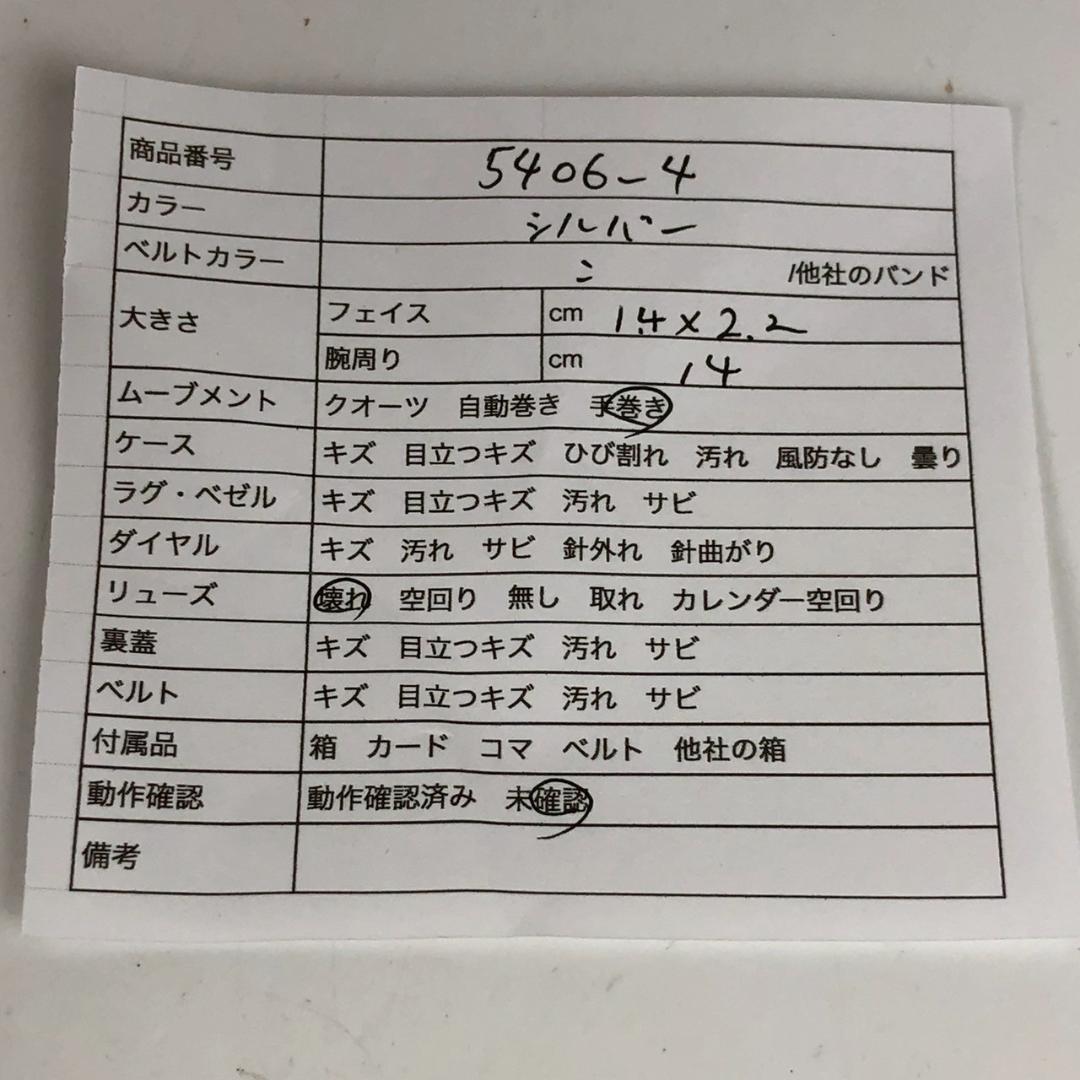 商品番号 5406-4
カラー シルバー
ベルトカラー 〃 /他社のバンド
大きさ フェイス cm 1.4×2.2
腕周り cm 14
ムーブメント クオーツ 自動巻き 手巻き
ケース キズ 目立つキズ ひび割れ 汚れ 風防なし 曇り
ラグ・ベゼル キズ 目立つキズ 汚れ サビ
ダイヤル キズ 汚れ サビ 針外れ 針曲がり
リューズ 壊れ 空回り 無し 取れ カレンダー空回り
裏蓋 キズ 目立つキズ 汚れ サビ
ベルト キズ 目立つキズ 汚れ サビ
付属品 箱 カード コマ ベルト 他社の箱
動作確認 動作確認済み 未確認
備考